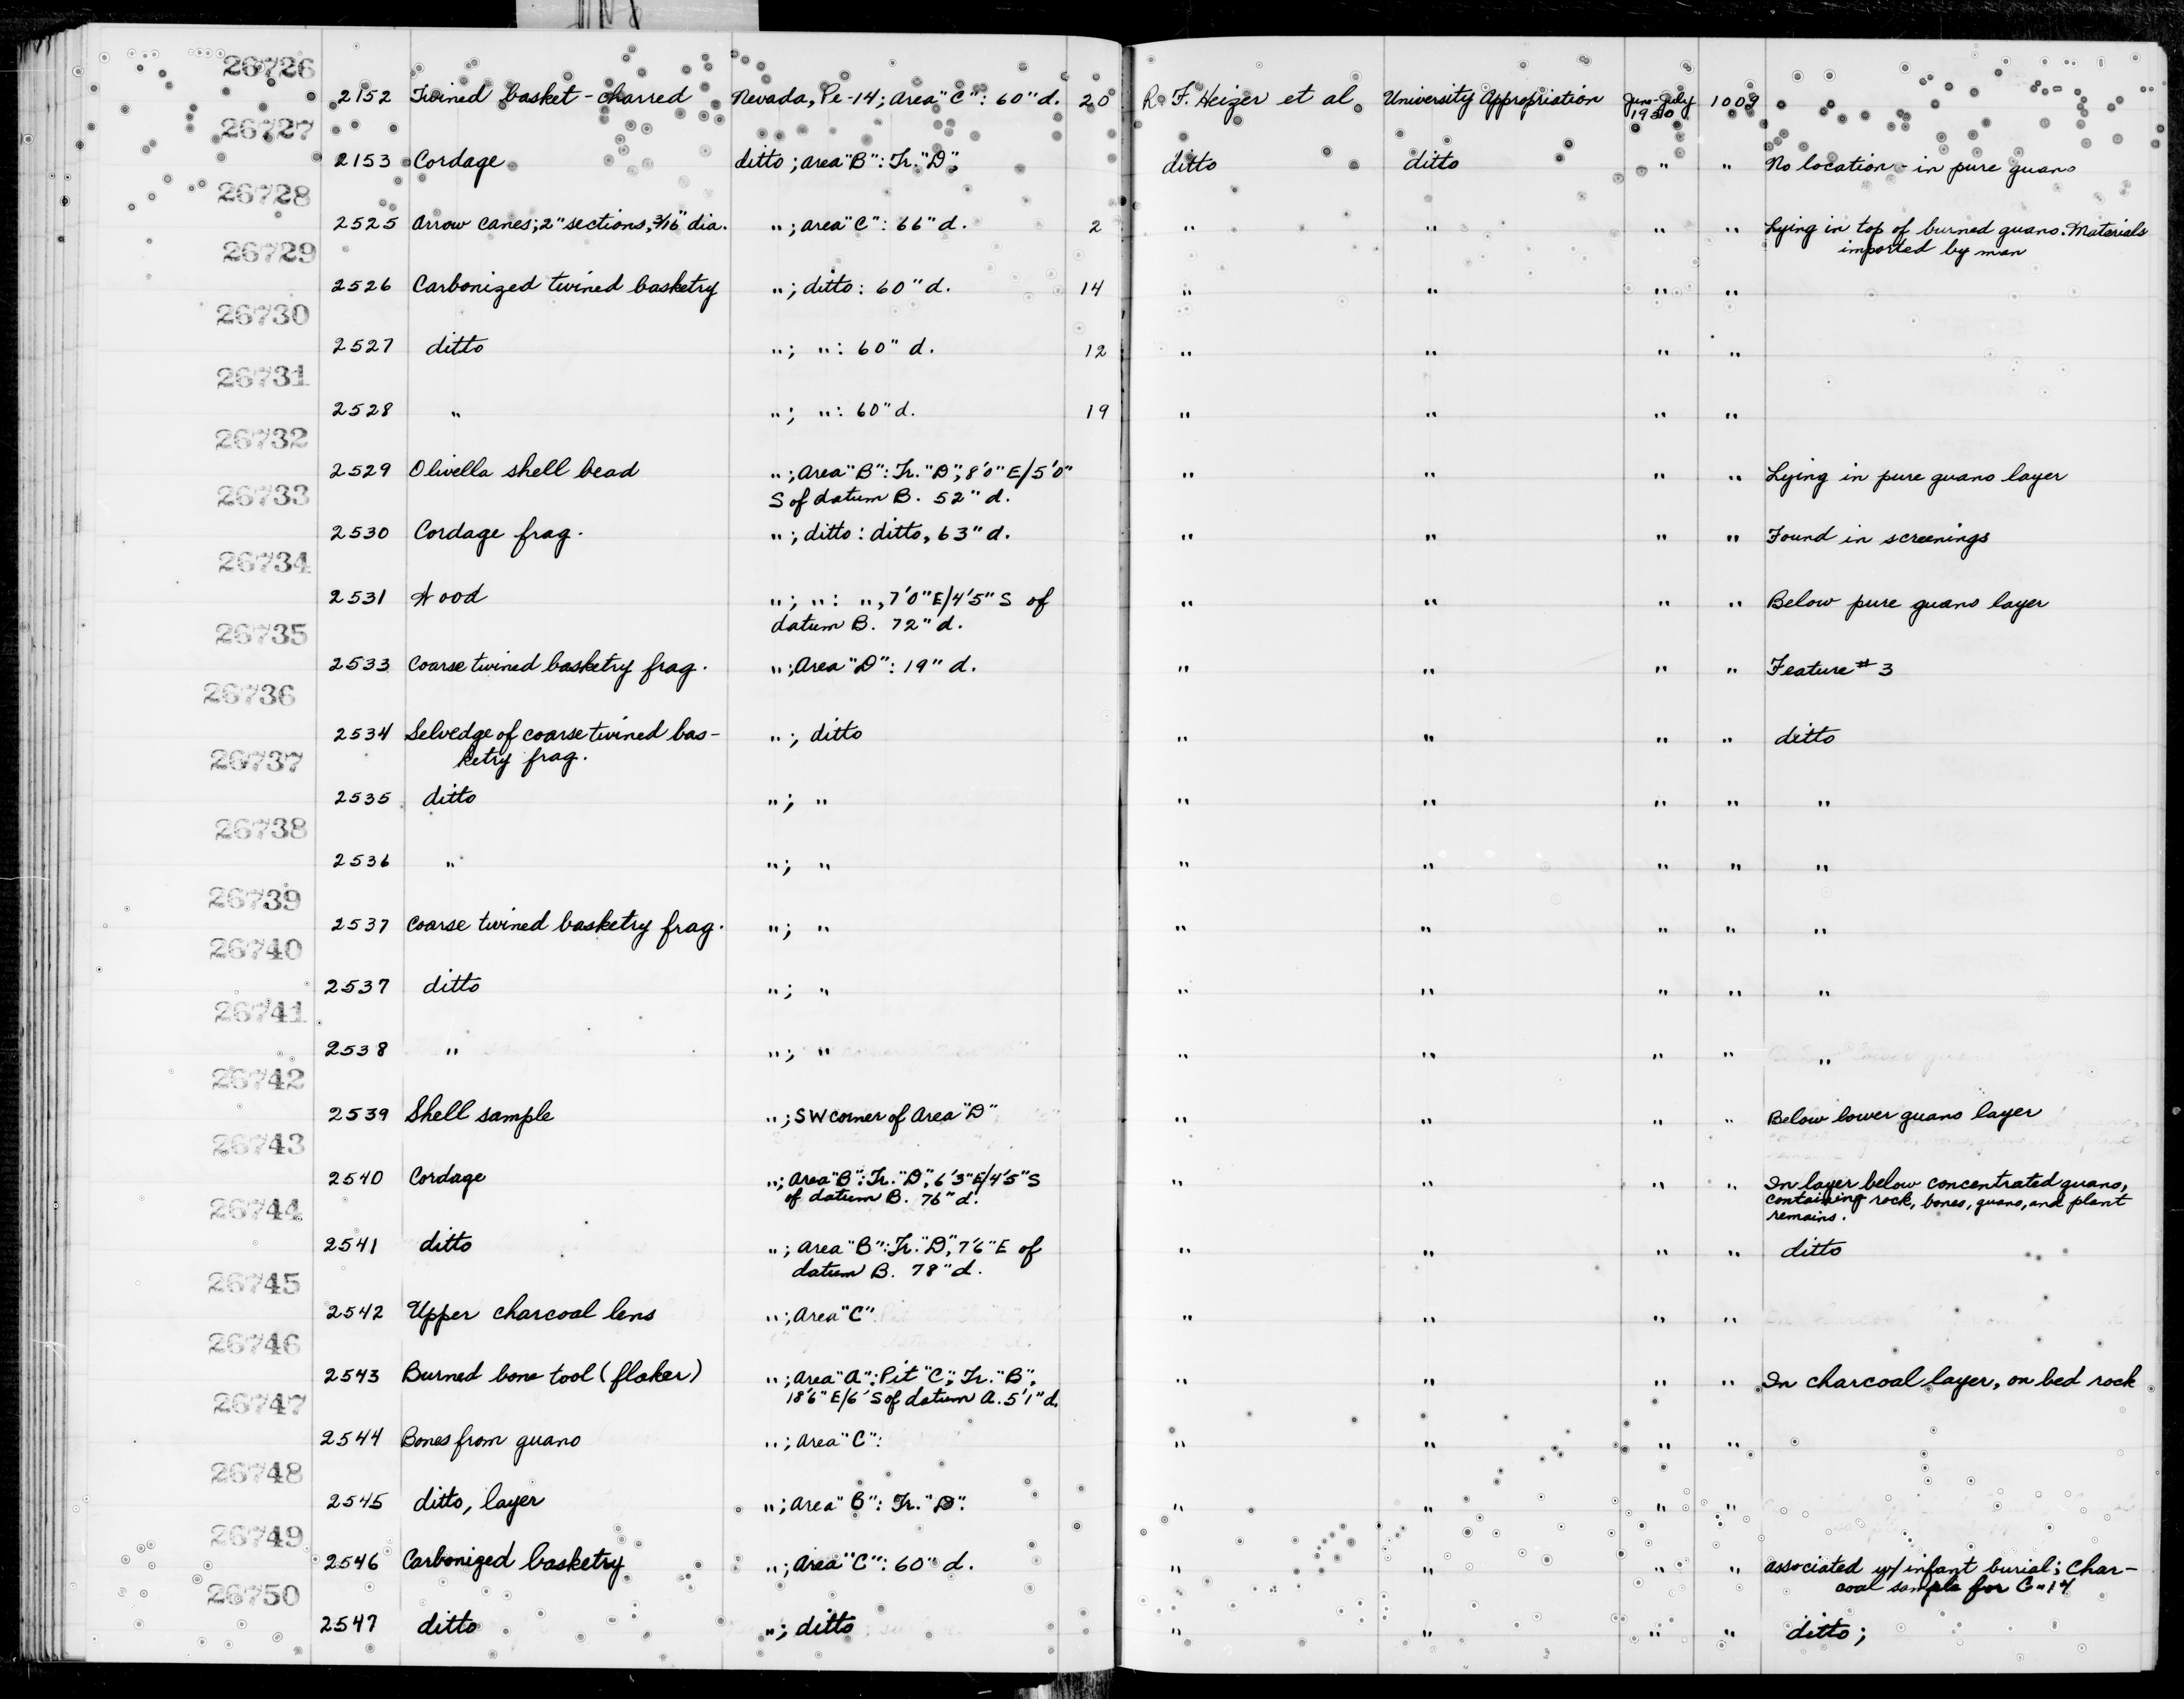 26726
2152 Twined basket - charred Nevada, Pe-14; Area "C": 60" d. 20 R. F. Heizer et al University Appropriation June-July 1009
26727
2153 Cordage ditto; Area "B": Tr. "D"; ditto ditto " " No location - in pure guano
26728
2525 Arrow canes; 2" sections, 3/16" dia. "; Area "C": 66" d. 2 " " " " Lying in top of burned guano. Materials
imported by man
26729
2526 Carbonized twined basketry "; ditto: 60" d. 14 " " " "
26730
2527 ditto "; ": 60" d. 12 " " " "
26731
2528 " "; ": 60" d. 19 " " " "
26732
2529 Olivella shell bead "; Area "B": Tr. "D"; 8'0" E/5'0" " " " " Lying in pure guano layer
26733
S of datum B. 52" d.
2530 Cordage frag. "; ditto: ditto, 63" d. " " " " Found in screenings
26734
2531 Wood "; ": ", 7'0" E/4'5" S of " " " " Below pure guano layer
datum B. 72" d.
26735
2533 Coarse twined basketry frag. "; Area "D": 19" d. " " " " Feature # 3
26736
2534 Selvedge of coarse twined bas- "; ditto " " " " ditto
ketry frag.
26737
2535 ditto "; " " " " " "
26738
2536 " "; " " " " " "
26739
2537 Coarse twined basketry frag. "; " " " " " "
26740
2537 ditto "; " " " " " "
26741
2538 " "; " " " " " "
26742
2539 Shell sample "; SW corner of Area "D" " " " " Below lower guano layer
26743
2540 Cordage "; Area "B": Tr. "D", 6'3" E/4'5" S " " " " In layer below concentrated guano,
of datum B. 76" d. containing rock, bones, guano, and plant
remains.
26744
2541 ditto "; Area "B": Tr. "D", 7'6" E of " " " " ditto
datum B. 78" d.
26745
2542 Upper charcoal lens "; Area "C" " " " "
26746
2543 Burned bone tool (flaker) "; Area "A": Pit "C"; Tr. "B"; " " " " In charcoal layer, on bed rock
18'6" E/6' S of datum A. 5'1" d.
26747
2544 Bones from guano "; Area "C": " " " "
26748
2545 ditto, layer "; Area "B": Tr. "D". " " " "
26749
2546 Carbonized basketry "; Area "C": 60" d. " " " " associated w/ infant burial; Char-
coal sample for C-14
26750
2547 ditto "; ditto " " " " ditto;